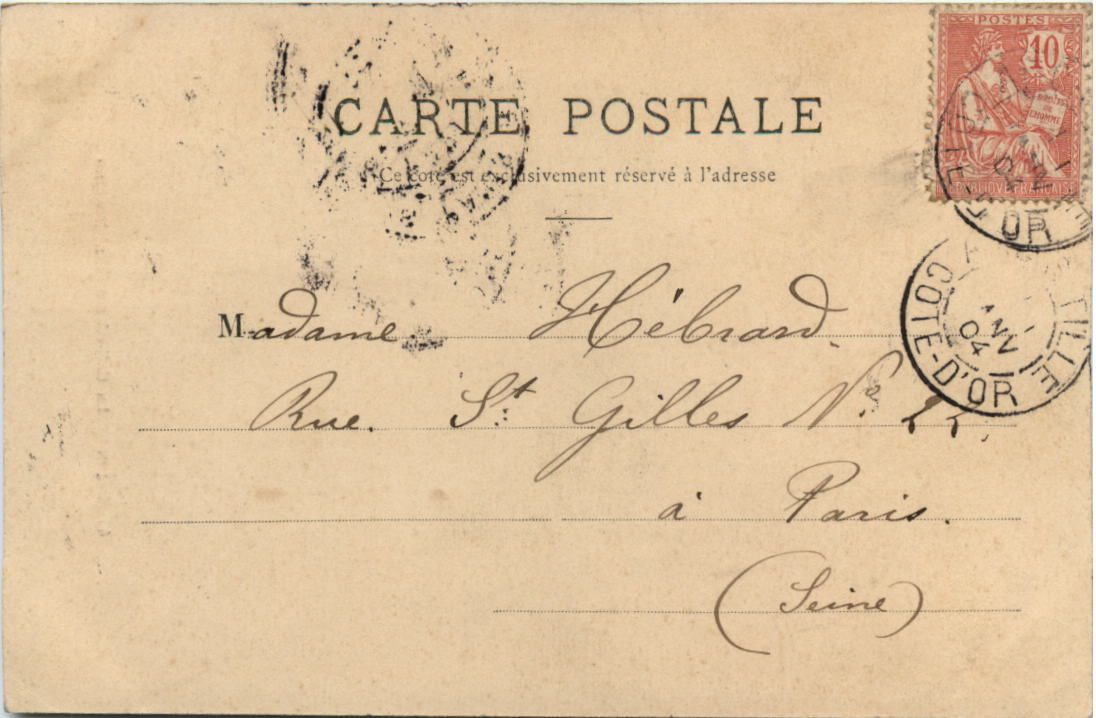 POSTES
10
DROITS DE L'HOMME
REPUBLIQUE FRANÇAISE
CARTE POSTALE
Ce côté est exclusivement réservé à l'adresse
Madame Hébrard.
Rue. St. Gilles Nº
à Paris.
(Seine)
COTE-D'OR
COTE-D'OR
04